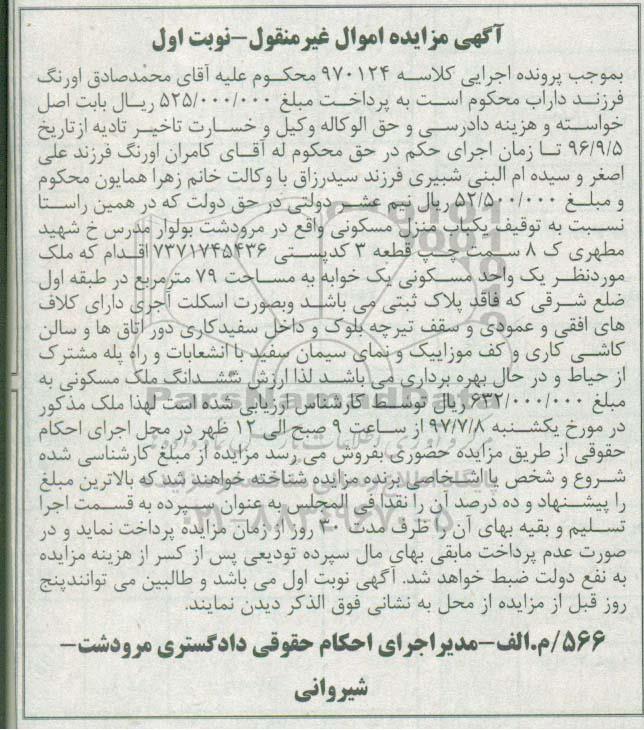 آگهی مزایده اموال غیرمنقول-نوبت اول
بموجب پرونده اجرایی کلاسه ۹۷۰۱۲۴ محکوم علیه آقای محمدصادق اورنگ
فرزند داراب محکوم است به پرداخت مبلغ ۵۲۵/۰۰۰/۰۰۰ ریال بابت اصل
خواسته و هزینه دادرسی و حق الوکاله وکیل و خسارت تاخیر تادیه ازتاریخ
۹۶/۹/۵ تا زمان اجرای حکم در حق محکوم له آقای کامران اورنگ فرزند علی
اصغر و سیده ام البنی شبیری فرزند سیدرزاق با وکالت خانم زهرا همایون محکوم
و مبلغ ۵۲/۵۰۰/۰۰۰ ریال نیم عشر دولتی در حق دولت که در همین راستا
نسبت به توقیف یکباب منزل مسکونی واقع در مرودشت بولوار مدرس خ شهید
مطهری ک ۸ سمت چپ قطعه ۳ کدپستی ۷۳۷۱۷۴۵۴۳۶ اقدام که ملک
موردنظر یک واحد مسکونی یک خوابه به مساحت ۷۹ مترمربع در طبقه اول
ضلع شرقی که فاقد پلاک ثبتی می باشد وبصورت اسکلت آجری دارای کلاف
های افقی و عمودی و سقف تیرچه بلوک و داخل سفیدکاری دور اتاق ها و سالن
کاشی کاری و کف موزاییک و نمای سیمان سفید با انشعابات و راه پله مشترک
از حیاط و در حال بهره برداری می باشد لذا ارزش ششدانگ ملک مسکونی به
مبلغ ۶۳۲/۰۰۰/۰۰۰ ریال توسط کارشناس ارزیابی شده است لهذا ملک مذکور
در مورخ یکشنبه ۹۷/۷/۸ از ساعت ۹ صبح الی ۱۲ ظهر در محل اجرای احکام
حقوقی از طریق مزایده حضوری بفروش می رسد مزایده از مبلغ کارشناسی شده
شروع و شخص یا اشخاصی برنده مزایده شناخته خواهند شد که بالاترین مبلغ
را پیشنهاد و ده درصد آن را نقدا فی المجلس به عنوان سپرده به قسمت اجرا
تسلیم و بقیه بهای آن را ظرف مدت ۳۰ روز از زمان مزایده پرداخت نماید و در
صورت عدم پرداخت مابقی بهای مال سپرده تودیعی پس از کسر از هزینه مزایده
به نفع دولت ضبط خواهد شد. آگهی نوبت اول می باشد و طالبین می توانندپنج
روز قبل از مزایده از محل به نشانی فوق الذکر دیدن نمایند.
۵۶۶/م.الف-مدیراجرای احکام حقوقی دادگستری مرودشت-
شیروانی
ParsNamadData